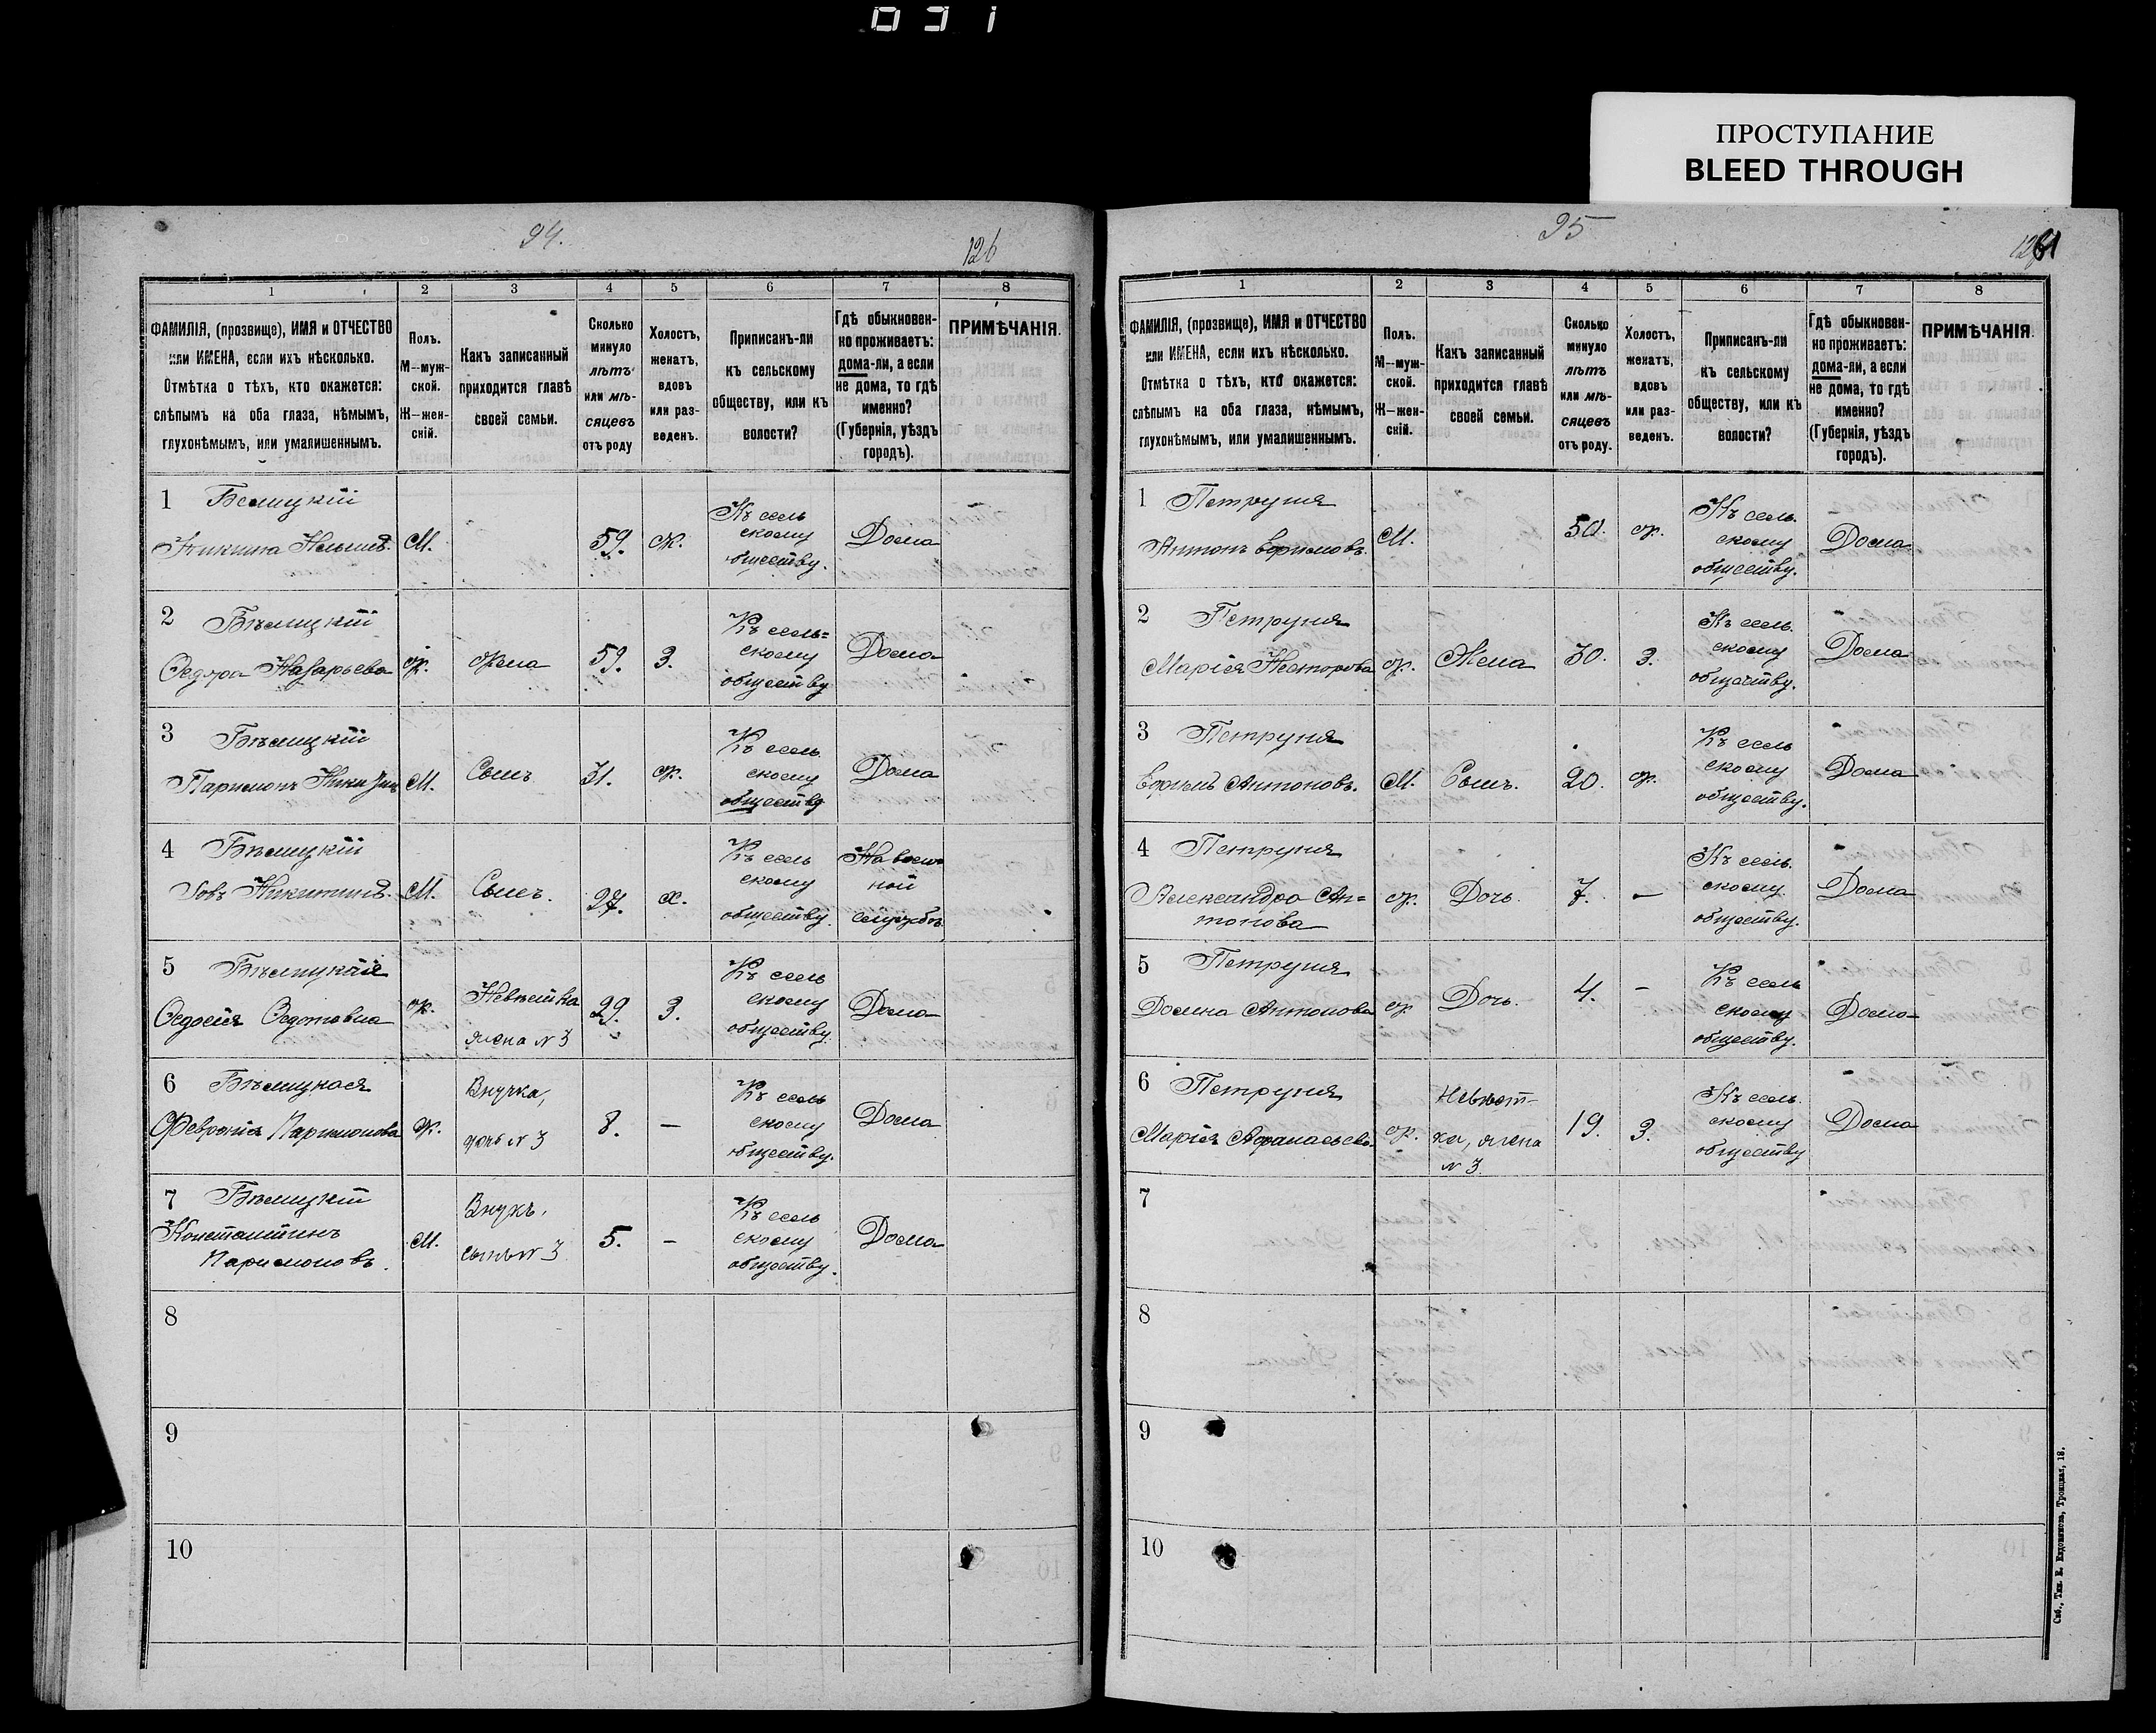 031
ПРОСТУПАНИЕ
BLEED THROUGH
94.
126
1 2 3 4 5 6 7 8
ФАМИЛІЯ, (прозвище), ИМЯ и ОТЧЕСТВО
или ИМЕНА, если ихъ нѣсколько.
Отмѣтка о тѣхъ, кто окажется:
слѣпымъ на оба глаза, нѣмымъ,
глухонѣмымъ, или умалишеннымъ.
Полъ.
М—муж-
ской.
Ж—жен-
скій.
Какъ записанный
приходится главѣ
своей семьи.
Сколько
минуло
лѣтъ
или мѣ-
сяцевъ
отъ роду
Холостъ,
женатъ,
вдовъ
или раз-
веденъ.
Приписанъ-ли
къ сельскому
обществу, или къ
волости?
Гдѣ обыкновен-
но проживаетъ:
дома-ли, а если
не дома, то гдѣ
именно?
(Губернія, уѣздъ
городъ).
ПРИМѢЧАНІЯ.
1 Белицкій
Никита М. 59. ж. Къ сель
скому
обществу. Дома
2 Бѣлицкій
Федора Назарьева ж. жена 59. З. Къ сель=
скому
обществу Дома
3 Бѣлицкій
Паримонъ М. Сынъ 31. ж. Къ сель
скому
обществу Дома
4 Бѣлицкій
Іовъ Никитинъ. М. Сынъ. 27. х. Къ сель
скому
обществу. На воен
ной
службѣ
5 Бѣлицкая
Федосія Федотовна ж. Невѣстка
жена № 3 29. З. Къ сель
скому
обществу. Дома
6 Бѣлицкая
Февронія Паримонова ж. Внучка,
дочь № 3 8. — Къ сель
скому
обществу. Дома
7 Бѣлицкій
Константинъ
Паримоновъ. М. Внукъ,
сынъ № 3 5. — Къ сель
скому
обществу. Дома
8
9
10
95
1 2 3 4 5 6 7 8
ФАМИЛІЯ, (прозвище), ИМЯ и ОТЧЕСТВО
или ИМЕНА, если ихъ нѣсколько.
Отмѣтка о тѣхъ, кто окажется:
слѣпымъ на оба глаза, нѣмымъ,
глухонѣмымъ, или умалишеннымъ.
Полъ.
М—муж-
ской.
Ж—жен-
скій.
Какъ записанный
приходится главѣ
своей семьи.
Сколько
минуло
лѣтъ
или мѣ-
сяцевъ
отъ роду.
Холостъ,
женатъ,
вдовъ
или раз-
веденъ.
Приписанъ-ли
къ сельскому
обществу, или къ
волости?
Гдѣ обыкновен-
но проживаетъ:
дома-ли, а если
не дома, то гдѣ
именно?
(Губернія, уѣздъ
городъ).
ПРИМѢЧАНІЯ.
1 Петруня
Антонъ Ефимовъ. М. 50. ж. Къ сель.
скому
обществу. Дома
2 Петруня
Марія Несторова ж. Жена 30. З. Къ сель.
скому
обществу. Дома
3 Петруня
Ефимъ Антоновъ. М. Сынъ. 20. ж. Къ сель
скому
обществу. Дома
4 Петруня
Александра Ан=
тонова ж. Дочь. 7. — Къ сель.
скому
обществу. Дома
5 Петруня
Домна Антонова ж Дочь. 4. — Къ сель
скому
обществу. Дома
6 Петруня
Марія Афанасьева. ж. Невѣст-
ка, жена
№ 3. 19. З. Къ сель.
скому
обществу Дома
7
8
9
10
Спб., Тип. Е. Евдокимова, Троицкая, 18.